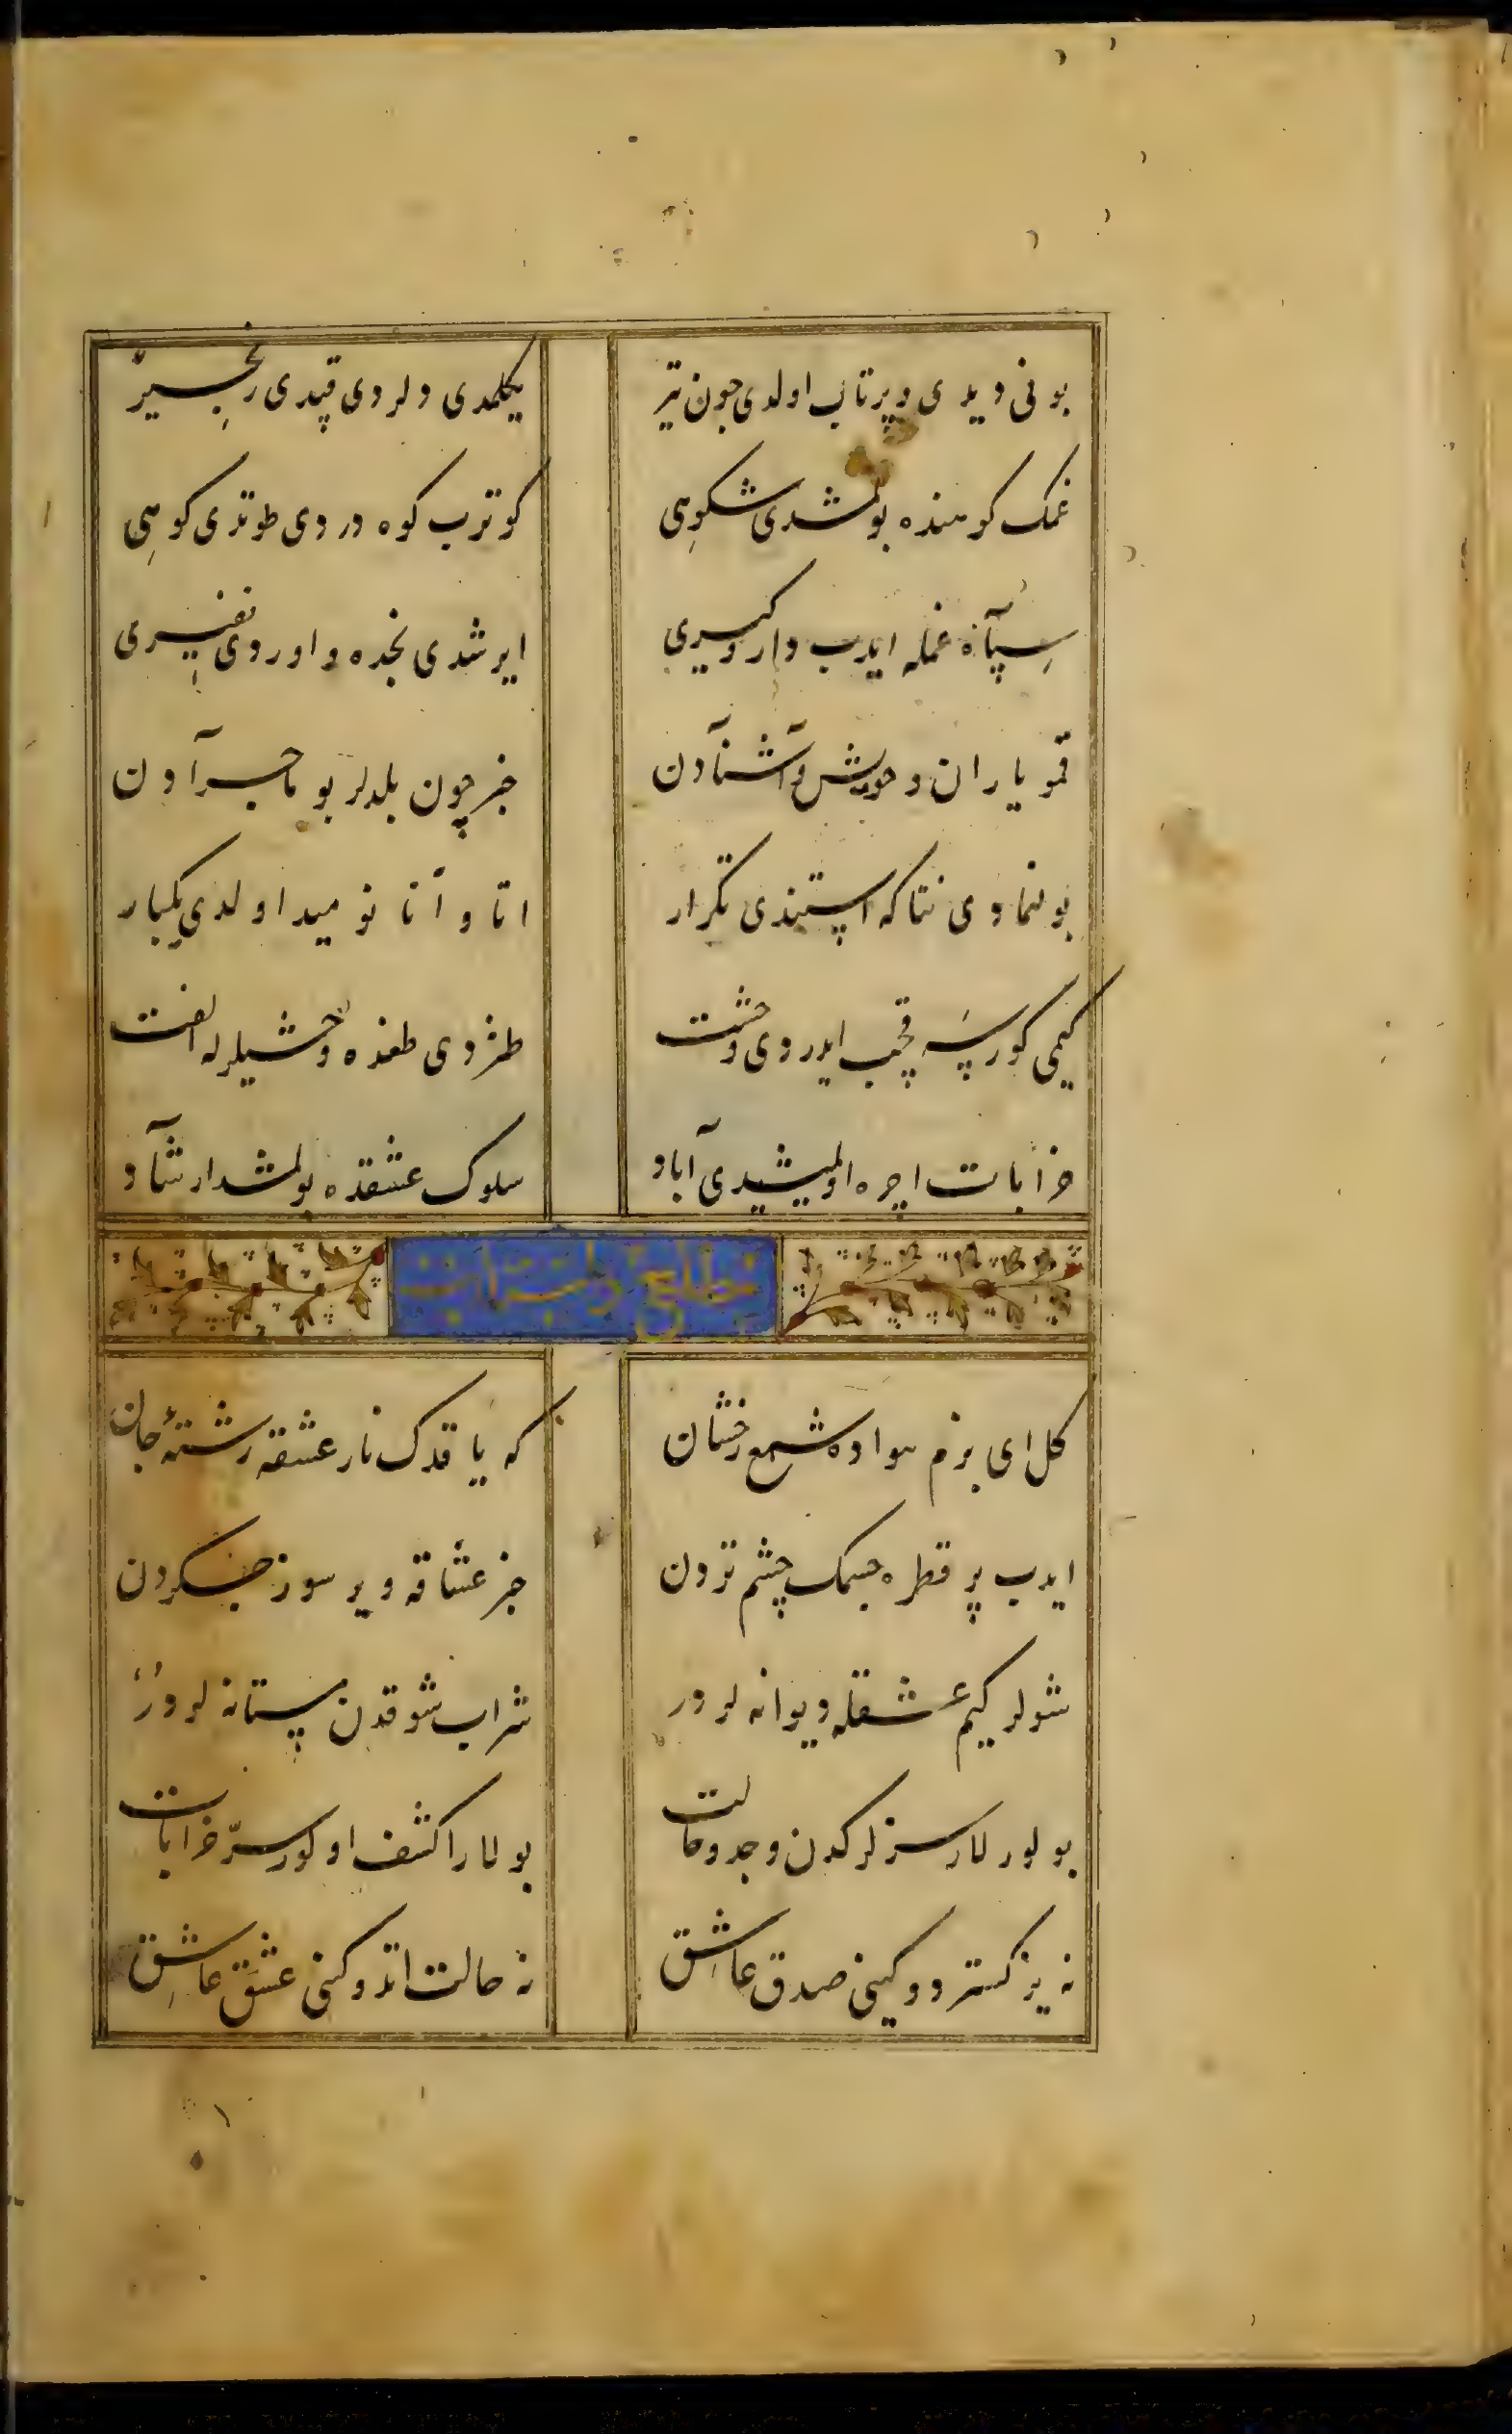 بونی دیدی و پرتاب اولدی چون تیر یکلمدی ولردی قیدی زنجیر
غمک کوهنده بولمشدی شکوهی کوترب کوه دردی طوتدی کوهی
سپاه غمله ایدب دار و کیری ایرشدی نجده داوردی نفیری
قمو یاران و خویش و آشنادن خبر چون بلدلر بو ماجرادن
بولنمادی نتاکه استندی تکرار اتا و آنا نومید اولدی یکبار
کیمی کورسه قچب ایدردی وحشت طغزدی طغده وحشیلرله الفت
خرابات اچره اولمیشیدی آباد سلوک عشقده بولمشدارشاد
خطاب
کل ای بزم هواده شمع رخشان که یاقدک نار عشقه رشتهٔ جان
ایدب پر قطره جسمک چشم تردن خبر عشاقه ویر سوز جکردن
شولر کیم عشقله دیوانه لردر شراب شوقدن مستانه لردر
بولور للار سزلرکدن وجد و حالت بولارا کشف اولور سرّ خرابات
نه یوز کستردوکینی صدق عاشق نه حالت اتدوکنی عشق عاشق